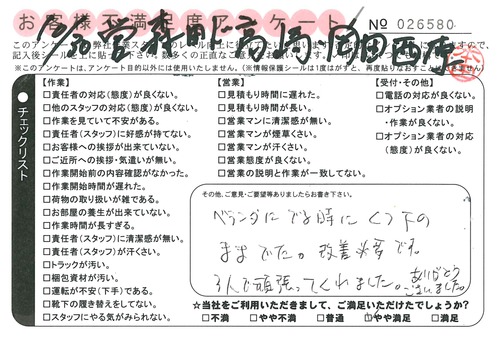 お客様不満足度アンケート
No 026580
【作業】
□責任者の対応(態度)が良くない。
□他のスタッフの対応(態度)が良くない。
□作業を見ていて不安がある。
□責任者(スタッフ)に好感が持てない。
□お客様への挨拶が出来ていない。
□ご近所への挨拶・気遣いが無い。
□作業開始前の内容確認がなかった。
□作業開始時間が遅れた。
□荷物の取り扱いが雑である。
□お部屋の養生が出来ていない。
□作業時間が長すぎる。
□責任者(スタッフ)に清潔感が無い。
□責任者(スタッフ)が汗くさい。
□トラックが汚い。
□梱包資材が汚い。
□運転が不安(下手)である。
□靴下の履き替えをしてない。
□スタッフにやる気がみられない。
【営業】
□見積もり時間に遅れた。
□見積もり時間が長い。
□営業マンに清潔感が無い。
□営業マンが煙草くさい。
□営業マンが汗くさい。
□営業態度が良くない。
□営業の説明と作業が一致してない。
【受付・その他】
□電話の対応が良くない。
□オプション業者の説明
・作業が良くない。
□オプション業者の対応
(態度)が良くない。
チェックリスト
その他、ご意見・ご要望等ありましたらお書き下さい。
ベランダにでる時にくつ下の
ままでた。改善必要です。
3人で頑張ってくれました。ありがとう
ございました。
☆当社をご利用いただきまして、ご満足いただけたでしょうか?
□不満 □やや不満 □普通 □やや満足 □満足